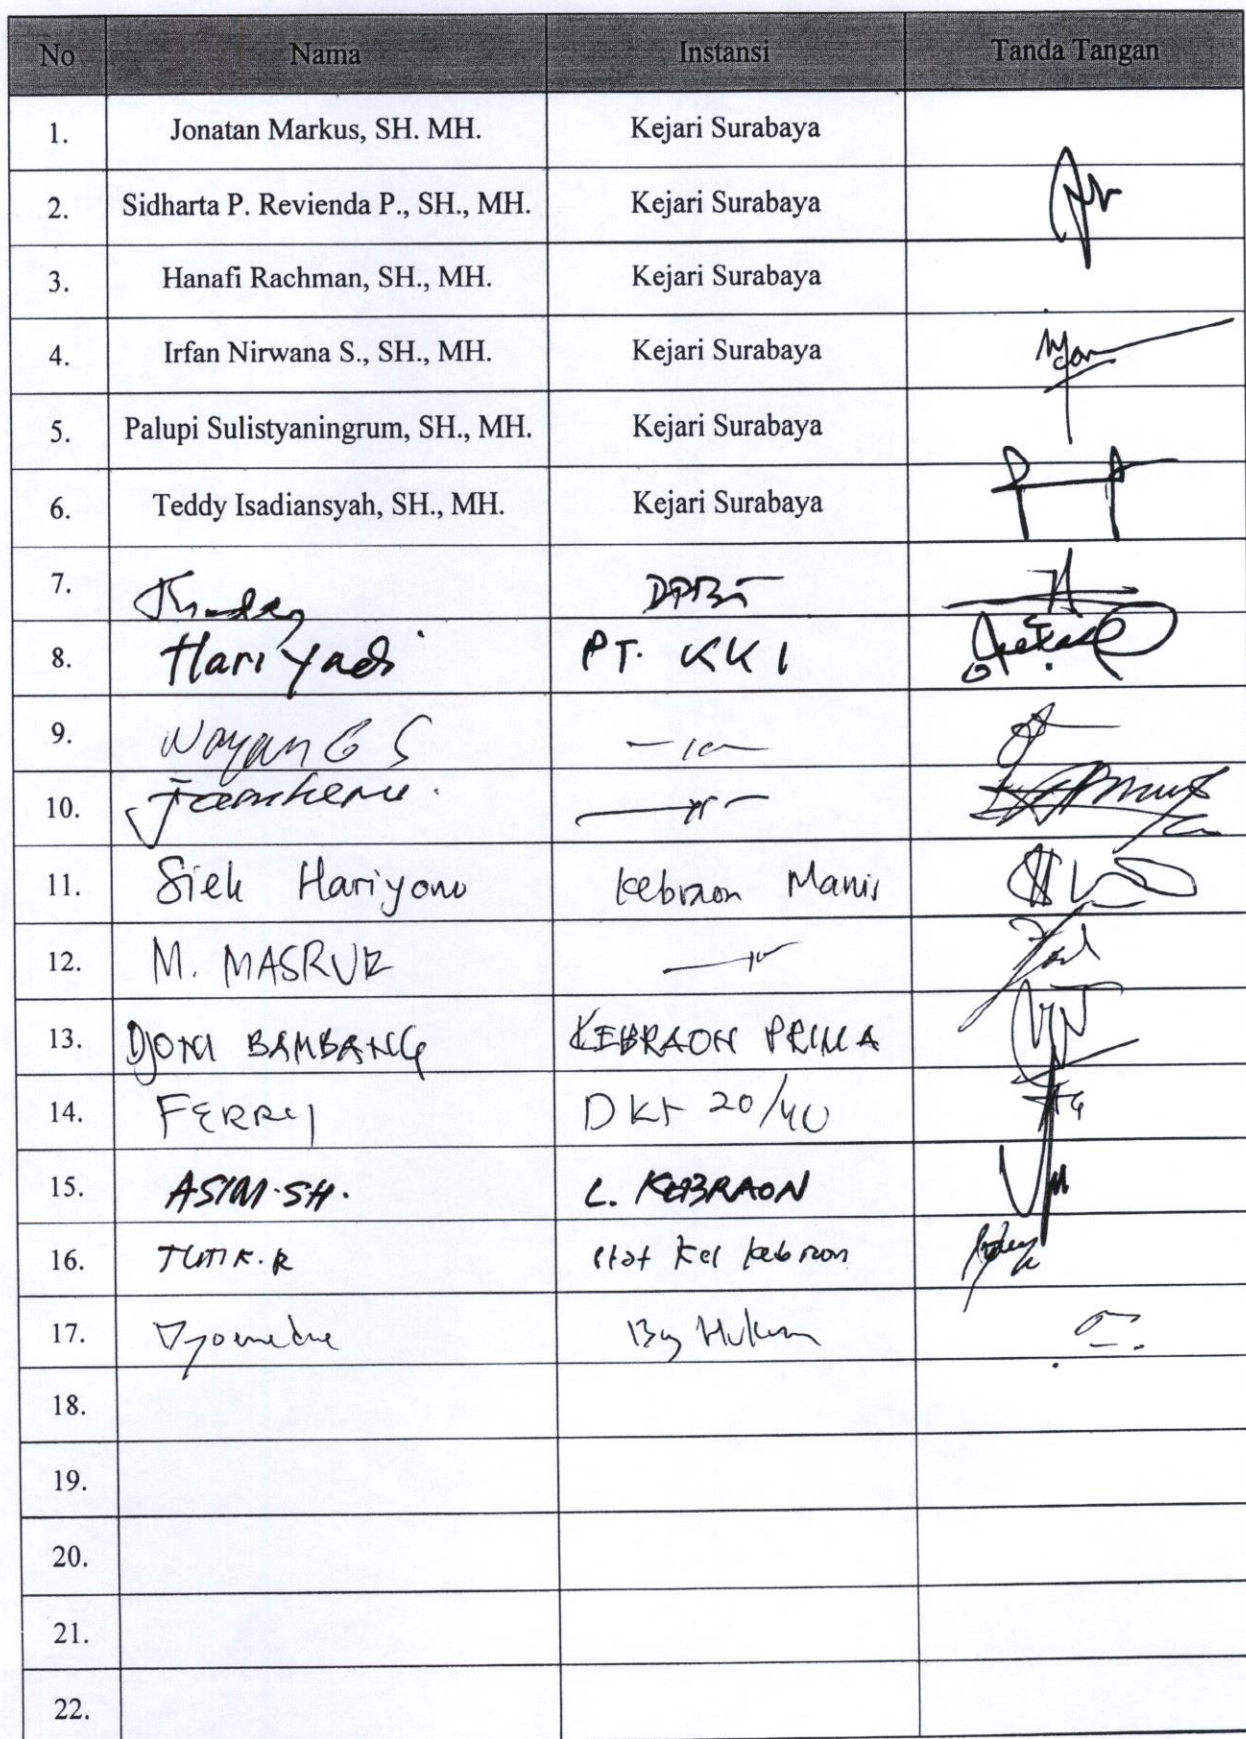 No Nama Instansi Tanda Tangan
1. Jonatan Markus, SH. MH. Kejari Surabaya
2. Sidharta P. Revienda P., SH., MH. Kejari Surabaya
3. Hanafi Rachman, SH., MH. Kejari Surabaya
4. Irfan Nirwana S., SH., MH. Kejari Surabaya
5. Palupi Sulistyaningrum, SH., MH. Kejari Surabaya
6. Teddy Isadiansyah, SH., MH. Kejari Surabaya
7.
8. Hariyadi PT. KKI
9. Wayan G S
10.
11. Siek Hariyono Kebraon Manis
12. M. MASRUR
13. DJONI BAMBANG KEBRAON PRIMA
14. FERRY 20/40
15. ASIM.SH. L. KEBRAON
16. TUTIK.R Staf Kel Kebraon
17. Bg Hukum
18.
19.
20.
21.
22.